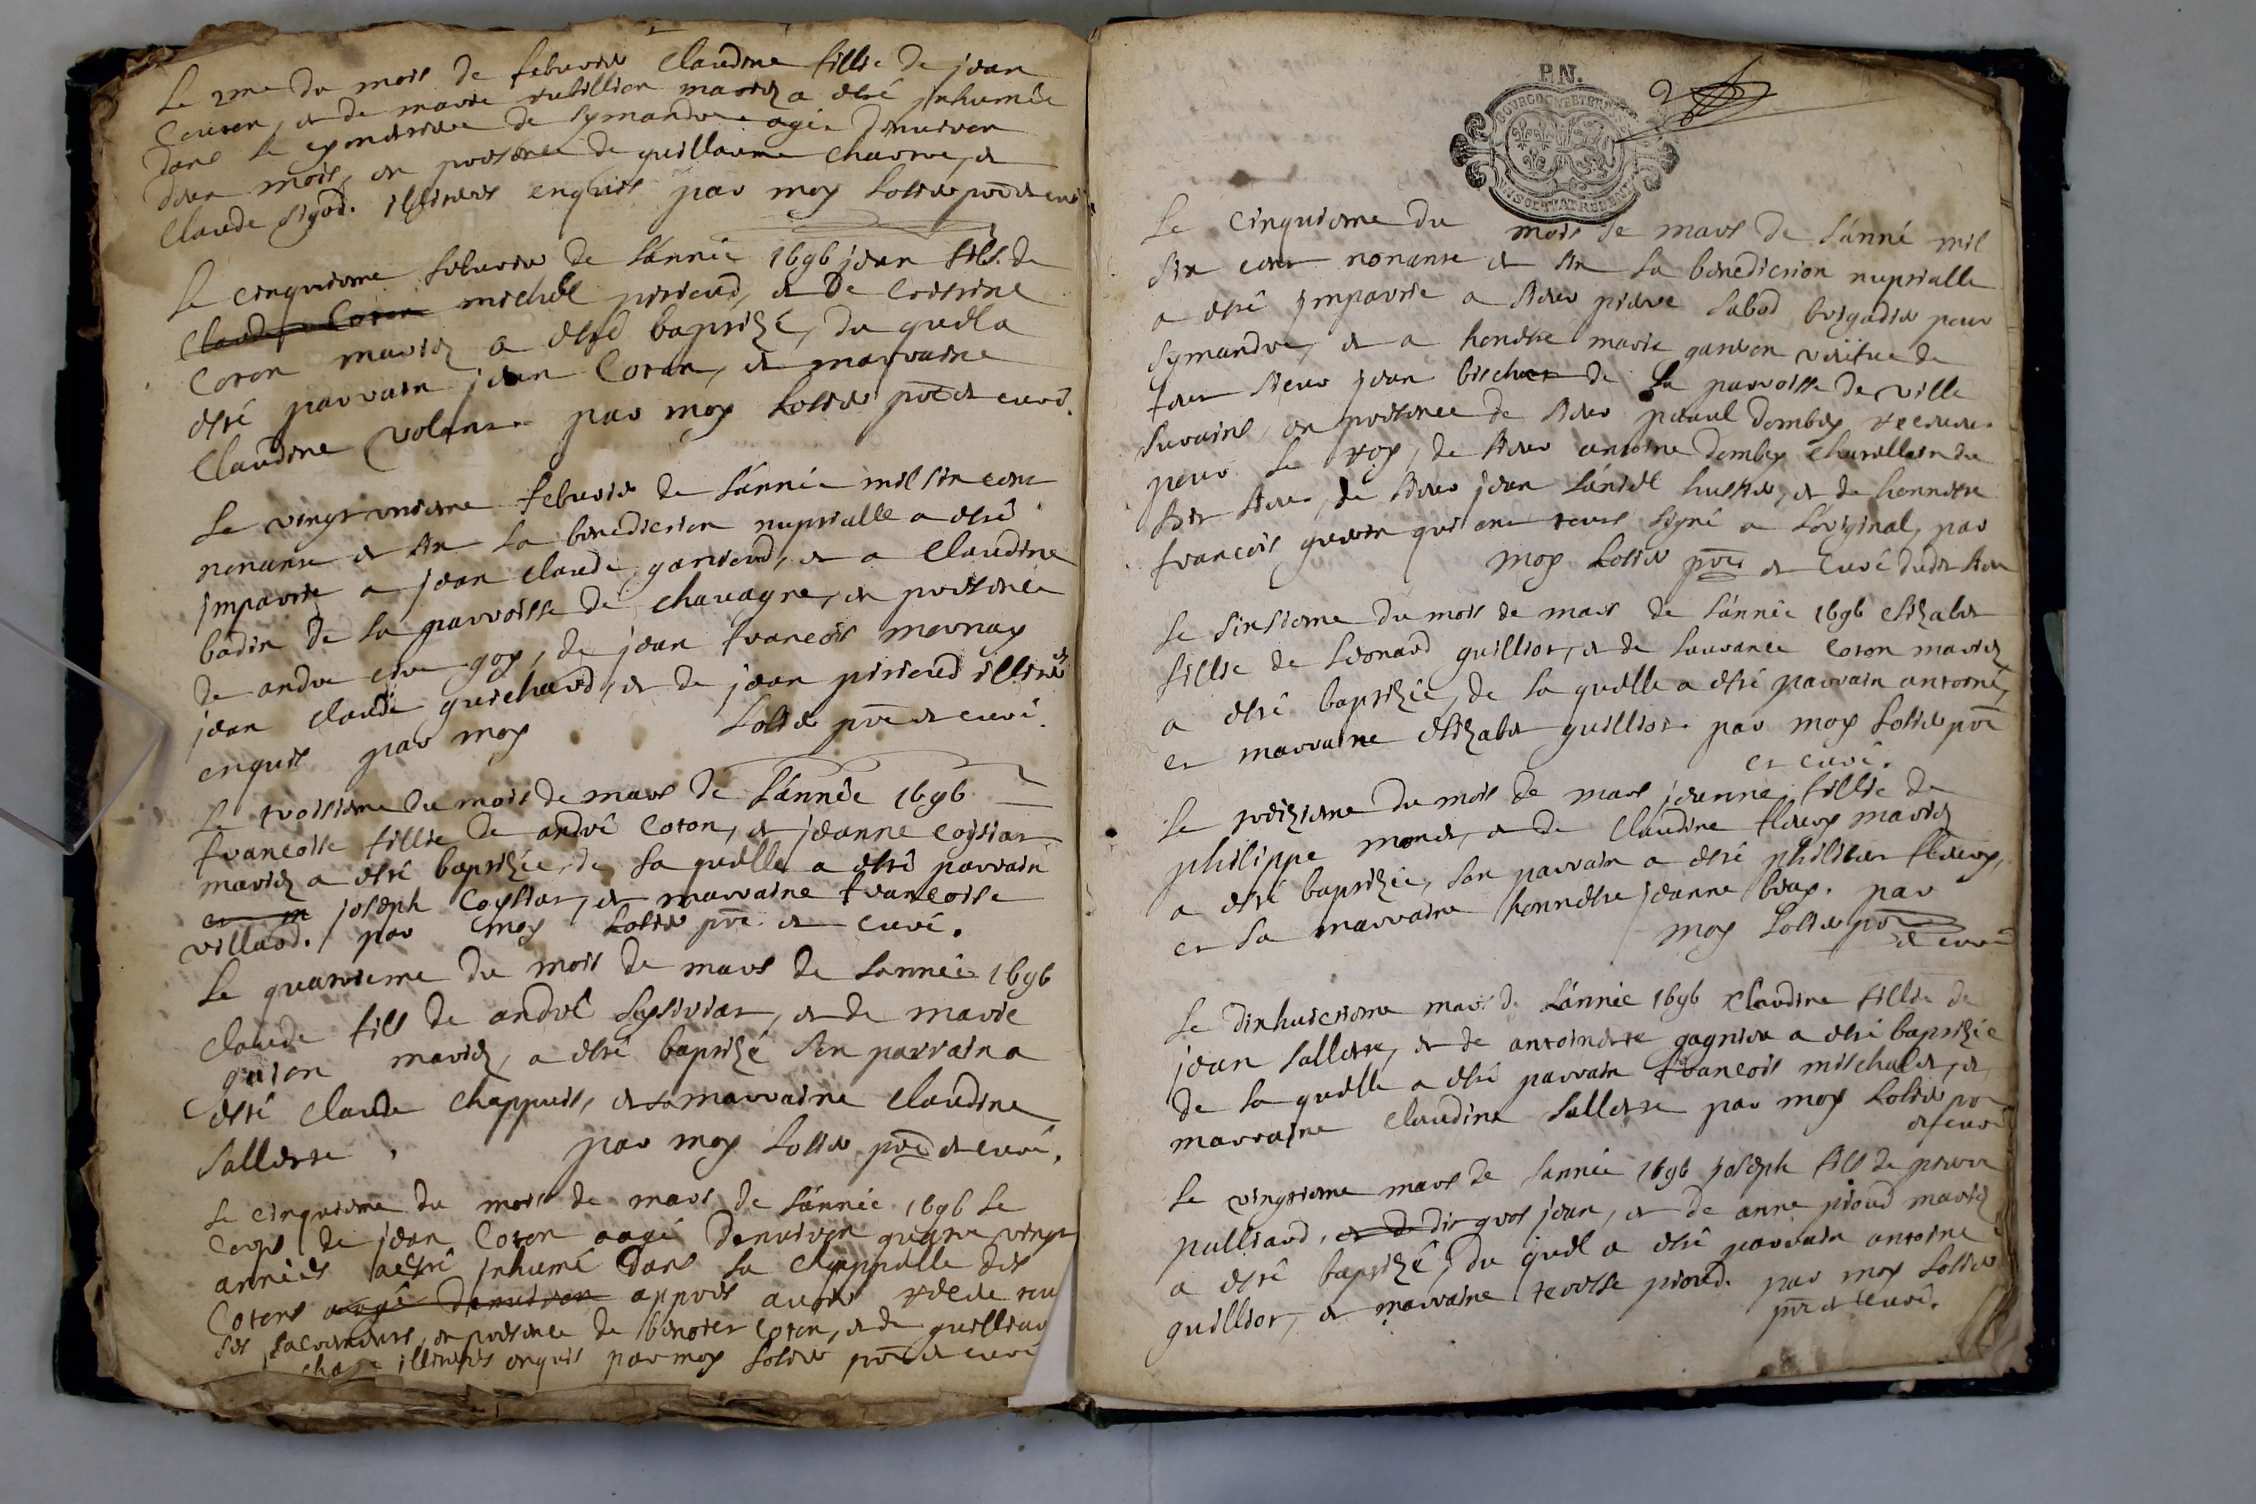 Le 2me du mois de febvrier Claudine fillie de jean
Couson, et de marie rubillion mariez a esté jnhumée
dans le cymetiere de Symandre agée denviron
deux mois, en presence de guillaume charne, et
Claude Sigod. illiterés enquis par moy Lollier pre et curé
Le cinquieme febvrier de l'année 1696 jean fils de
Claude Coron michel pirioud, et de Cristine
Coron mariez a esté baptizé, du quel a
esté parrain jean Coron, et marraine
Claudine Volant. par moy Lollier pre et curé.
Le vingt unieme febvrier de l'année mil six cent
nonante et six la benediction nuptialle a esté
jmpartie a jean claude garioud, et a Claudine
badin de la parroisse de chavagne, en presence
de andre goy, de jean francois mornay
jean claude guichard, et de jean pirioud illiterés
enquis par moy Lollier pre et curé.
Le troisieme du mois de mars de l'année 1696
francoise fillie de andré Coton, et jeanne coysiat
mariez a esté baptizée, de la quelle a esté parrain
joseph Coysiat, et marraine francoise
villard. par moy Lollier pre et curé.
Le quatrieme du mois de mars de l'année 1696
Claude fils de andré , et de marie
guion mariez, a esté baptizé son parrain a
esté claude chappuis, et sa marraine claudine
Sallette. par moy Lollier pre et curé.
Le cinquieme du mois de mars de l'année 1696 le
Corps de jean Coton aagé denviron quatre vingt
années a esté jnhumé dans la chappelle des
Cotons aagé denviron apprès avoir receu tou
ses sacrements, en presence de benoist Coton, et de guilliau
illiterés enquis par moy Lollier pre et curé
P.N.
2
Le cinquieme du mois de mars de l'anné mil
six cent nonante et six la benediction nuptialle
a esté jmpartie a sieur pierre Sabod brigadier pour
Symandre, et a honeste marie gardon veufue de
feu sieur jean bischet de la parroisse de ville
, en presence de sieur paul Dombey receveur
pour le roy, de sieur antoine Dombey chatellain du
dit lieu, de sieur jean huissier, et de honneste
francois guerin qui ont tous signé a l'original, par
moy Lollier pre et Curé dudit lieu
Le sixsieme du mois de mars de l'année 1696 elizabet
fillie de Leonard guilliot, et de Laurance Coton mariez
a esté baptizée, de la quelle a esté parrain antoine,
et marraine elizabet guilliot. par moy Lollier pre
et curé.
Le treizieme du mois de mars jeanne fillie de
philippe monet, et de Claudine fleury mariez
a esté baptizée, son parrain a esté philibert fleury,
et sa marraine honneste jeanne bray. par
moy Lollier pre
et curé
Le dixhuictieme mars de l'année 1696 Claudine fillie de
jean Sallette, et de antoinette gagnieu a esté baptizée
de la quelle a esté parrain francois mischalet, et
marraine Claudine Sallette par moy Lollier pre
et curé
Le vingtieme mars de l'année 1696 joseph fils de pierre
pulliard, dit gros jean, et de anne pioud mariez
a esté baptizé, du quel a esté parrain antoine
guilliot, et marraine pioud. par moy Lollier
pre et curé.